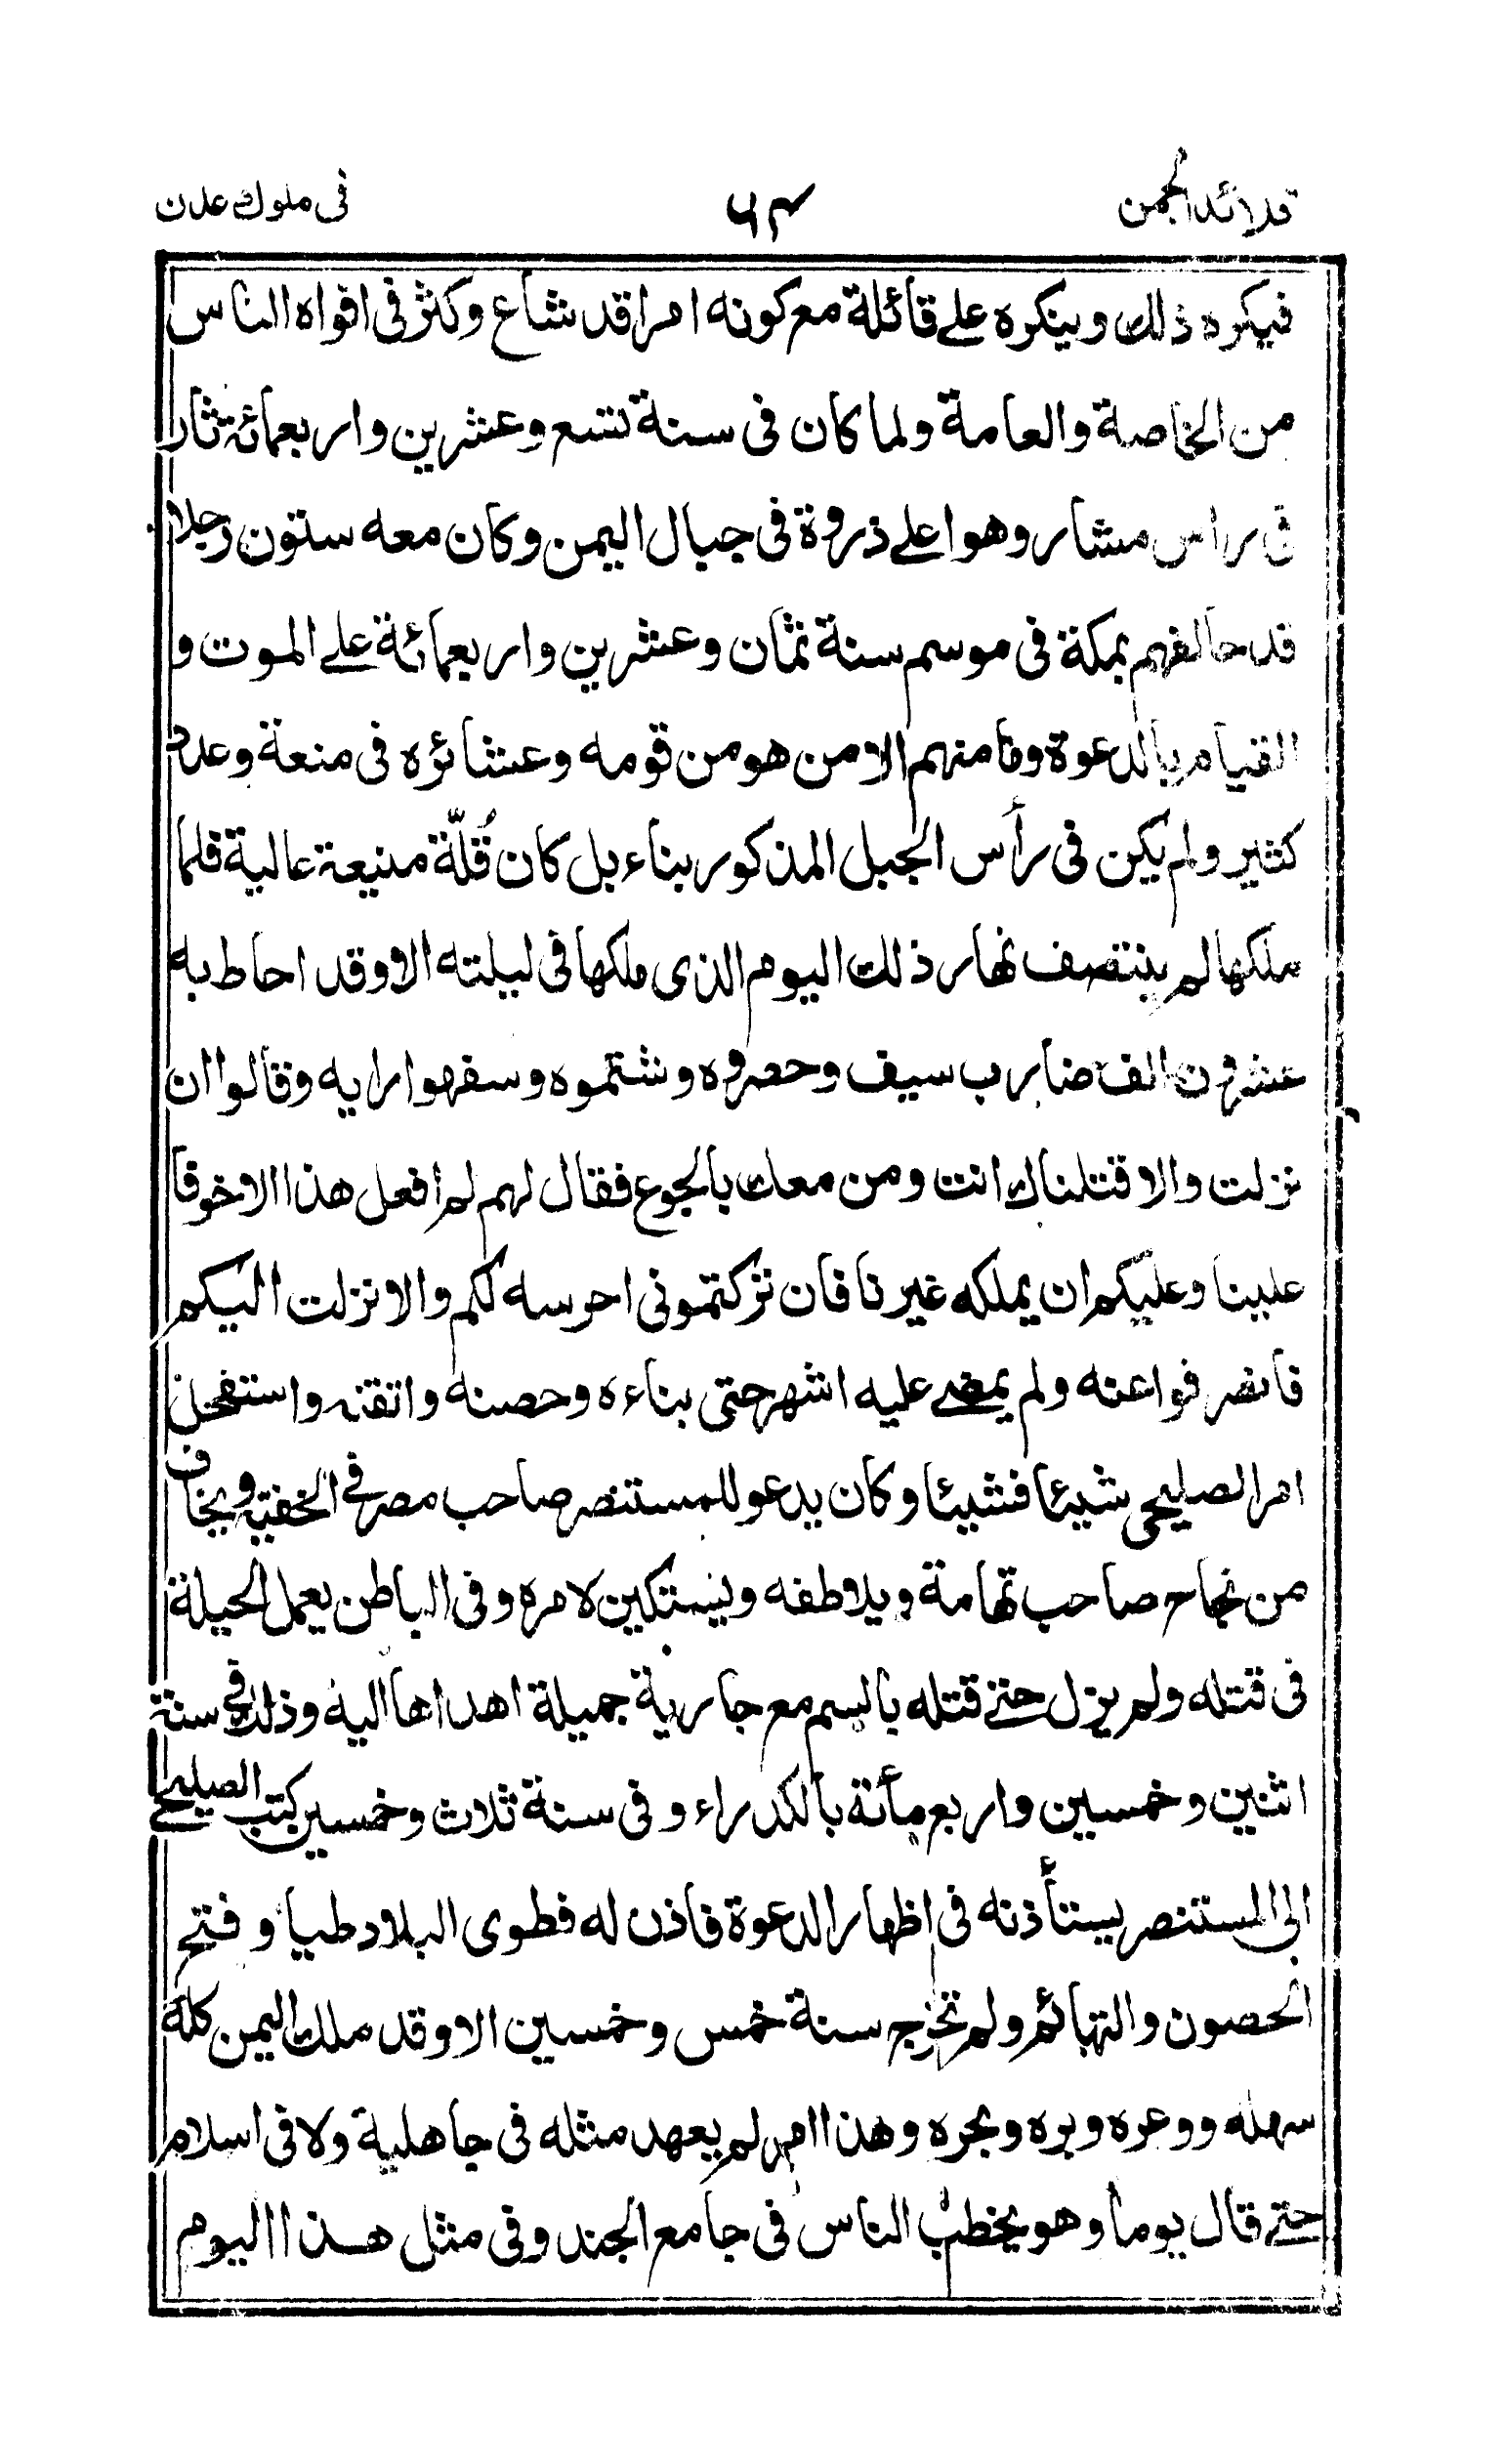 قلائد الجمن ٦٣ فى ملوك عدن
فيكره ذلك وينكره على قائلة مع كونه امرا قد شاع وكثر فى افواه الناس
من الخاصة والعامة ولما كان فى سنة تسع وعشرين واربعمائة ثار
فى راس مشار وهو اعلى ذروة فى جبال اليمن وكان معه ستون رجلا
قد حالفهم بمكة فى موسم سنة ثمان وعشرين واربعمائة على الموت و
القيام بالدعوة وما منهم الا من هو من قومه وعشائره فى منعة وعدد
كثير ولم يكن فى رأس الجبل المذكور بناء بل كان قُلّة منيعة عالية فلما
ملكها لم ينتصف نهار ذلك اليوم الذى ملكها فى ليلته الا وقد احاط به
عشرون الف ضارب سيف وحصروه وشتموه وسفهوا رايه وقالوا ان
نزلت والا قتلناك انت ومن معك بالجوع فقال لهم لم افعل هذا الا خوفا
علينا وعليكم ان يملكه غيرنا فان تركتمونى احرسه لكم والا نزلت اليكم
فانصرفوا عنه ولم يمضى عليه اشهر حتى بناءه وحصنه واتقنه واستفحل
امر الصليحى شيئا فشيئا وكان يدعو للمستنصر صاحب مصر فى الخفية ويخاف
من نجاح صاحب تهامة ويلاطفه ويستكين لامره وفى الباطن يعمل الحيلة
فى قتله ولم يزل حتى قتله بالسم مع جارية جميلة اهداها اليه وذلك فى سنة
اثنين وخمسين واربع مأئة بالكدراء وفى سنة ثلاث وخمسين كتب الصليحى
الى المستنصر يستأذنه فى اظهار الدعوة فاذن له فطوى البلاد طيا وفتح
الحصون والتهائم ولم تخرج سنة خمس وخمسين الا وقد ملك اليمن كله
سهله ووعره وبره وبحره وهذا امر لم يعهد مثله فى جاهلية ولا فى اسلام
حتى قال يوما وهو يخطب الناس فى جامع الجند وفى مثل هذا اليوم